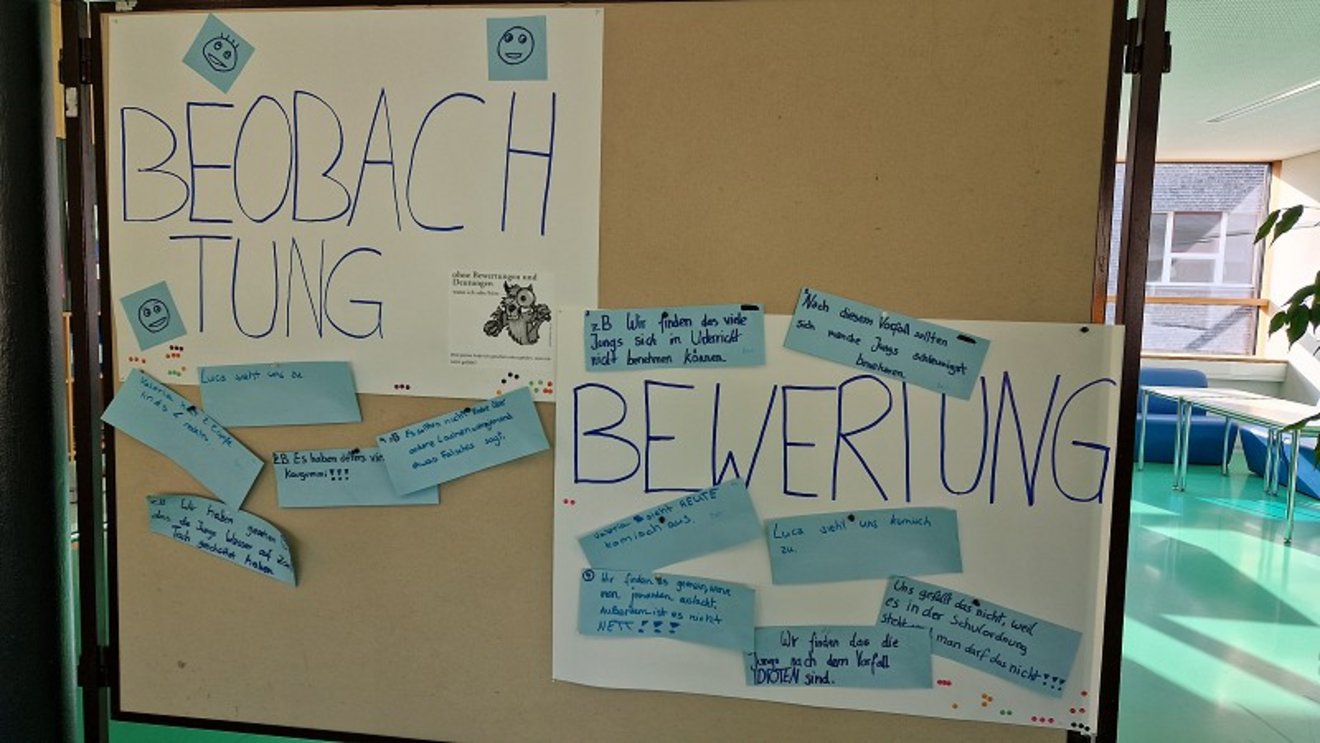 BEOBACH
TUNG
ohne Bewertungen und
Deutungen
Luca sieht uns zu
Valeria 2 Zöpfe
links 2 rechts.
z.B Es haben viele
Kaugummi!!!
andere Lachen wenn jemand
etwas Falsches sagt.
Wir haben gesehen
das die Jungs Wasser auf
Tisch geschüttet haben
z.B Wir finden das viele
Jungs sich in Unterricht
nicht benehmen können.
Nach diesem Vorfall sollten
sich manche Jungs schleunigst
benehmen.
BEWERTUNG
Valeria sieht HEUTE
komisch aus.
Luca sieht uns komisch
zu.
Wir finden es gemein, wenn
man jemanden auslacht.
Außerdem ist es nicht
NETT!!!
Uns gefällt das nicht, weil
es in der Schulordnung
steht man darf das nicht!!!
Wir finden das die
Jungs nach dem Vorfall
IDIOTEN sind.